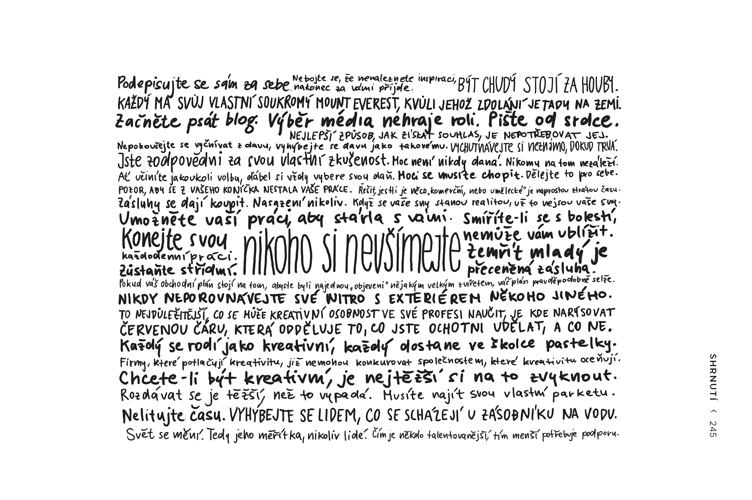 Podepisujte se sám za sebe. Nebojte se, že nenaleznete inspiraci, nakonec za vámi přijde. BÝT CHUDÝ STOJÍ ZA HOUBY.
KAŽDÝ MÁ SVŮJ VLASTNÍ SOUKROMÝ MOUNT EVEREST, KVŮLI JEHOŽ ZDOLÁNÍ JE TADY NA ZEMI.
Začněte psát blog. Výběr média nehraje roli. Pište od srdce.
NEJLEPŠÍ ZPŮSOB, JAK ZÍSKAT SOUHLAS, JE NEPOTŘEBOVAT JEJ.
Nepokoušejte se vyčnívat z davu, vyhýbejte se davu jako takovému. VYCHUTNÁVEJTE SI VZÁCNO, DOKUD TRVÁ.
Jste zodpovědní za svou vlastní zkušenost. Moc není nikdy daná. Nikomu na tom nezáleží.
Ať učiníte jakoukoli volbu, ďábel si vždy vybere svou daň. Moci se musíte chopit. Dělejte to pro sebe.
POZOR, ABY SE Z VAŠEHO KONÍČKA NESTALA VAŠE PRÁCE. Řešit, jestli je něco „komerční, nebo umělecké“ je naprostou ztrátou času.
Zásluhy se dají koupit. Nasazení nikoliv. Když se vaše sny stanou realitou, už to nejsou vaše sny.
Umožněte vaší práci, aby stárla s vámi. Smíříte-li se s bolestí,
Konejte svou nikoho si nevšímejte nemůže vám ublížit.
každodenní práci. Zemřít mladý je
Zůstaňte střídmí. přeceněná zásluha.
Pokud váš obchodní plán stojí na tom, abyste byli najednou „objeveni“ nějakým velkým zvířetem, váš plán pravděpodobně selže.
NIKDY NEPOROVNÁVEJTE SVÉ NITRO S EXTERIÉREM NĚKOHO JINÉHO.
TO NEJDŮLEŽITĚJŠÍ, CO SE MŮŽE KREATIVNÍ OSOBNOST VE SVÉ PROFESI NAUČIT, JE KDE NARÝSOVAT
ČERVENOU ČÁRU, KTERÁ ODDĚLUJE TO, CO JSTE OCHOTNI UDĚLAT, A CO NE.
Každý se rodí jako kreativní, každý dostane ve školce pastelky.
Firmy, které potlačují kreativitu, již nemohou konkurovat společnostem, které kreativitu oceňují.
Chcete-li být kreativní, je nejtěžší si na to zvyknout.
Rozdávat se je těžší, než to vypadá. Musíte najít svou vlastní parketu.
Nelitujte času. VYHÝBEJTE SE LIDEM, CO SE SCHÁZEJÍ U ZÁSOBNÍKU NA VODU.
Svět se mění. Tedy jeho měřítka, nikoliv lidé. Čím je někdo talentovanější, tím menší potřebuje podporu.
SHRNUTÍ < 245